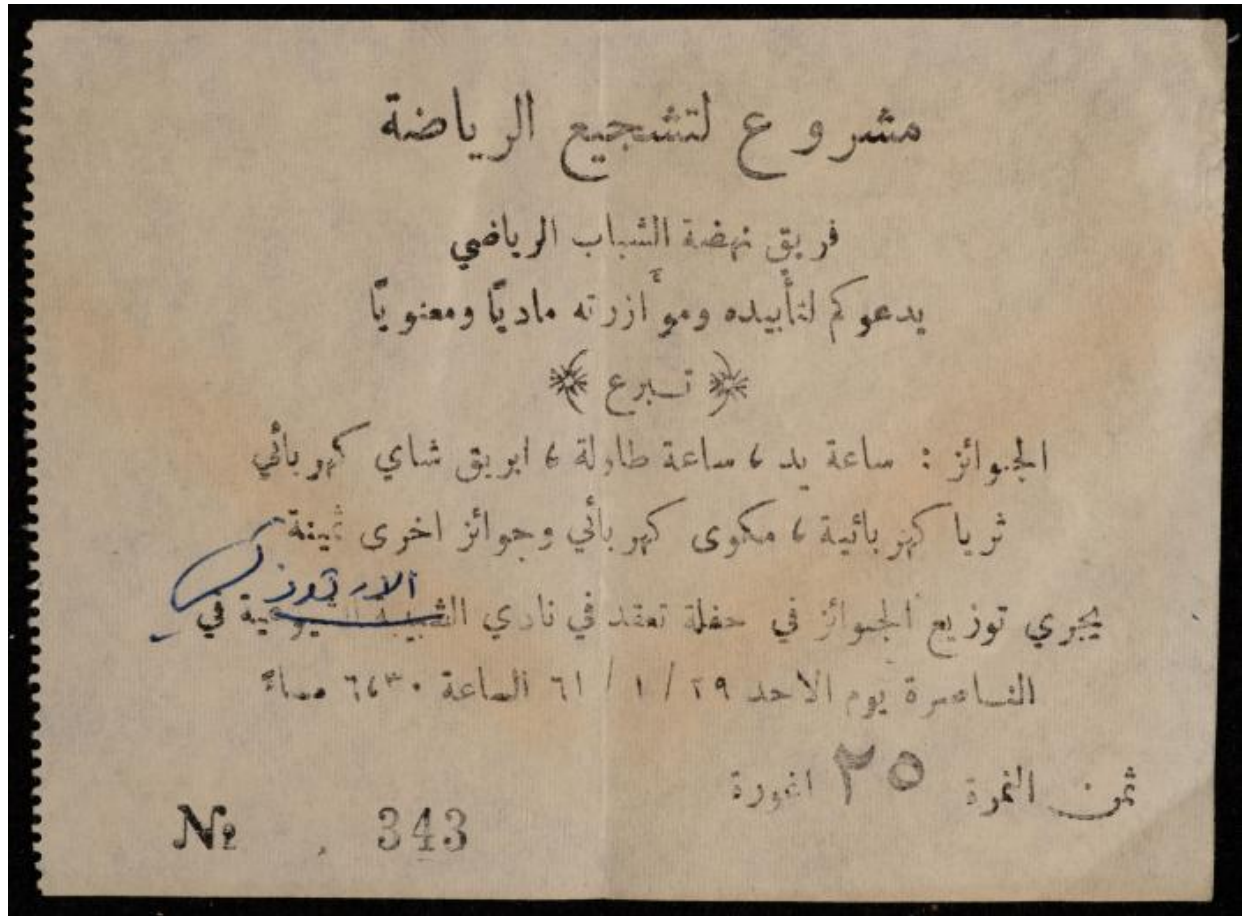 مشروع لتشجيع الرياضة
فريق نهضة الشباب الرياضي
يدعوكم لتأييده ومؤازرته ماديًا ومعنويًا
تبرع
الجوائز : ساعة يد ، ساعة طاولة ، ابريق شاي كهربائي
ثريا كهربائية ، مكوى كهربائي وجوائز اخرى ثمينة
يجري توزيع الجوائز في حفلة تعقد في نادي الشبيبة الشيوعية في
النـاصرة يوم الاحد ٢٩ / ١ / ٦١ الساعة ٦،٣٠ مساءً
ثمن النمرة ٢٥ اغورة
№ 343